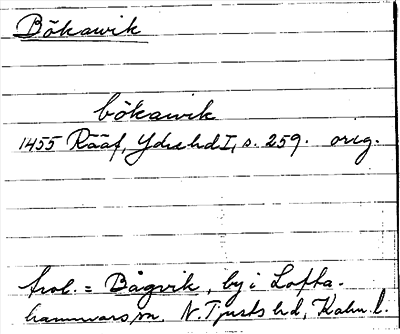 Bökawik
bökawik
1455 Rääf, Ydre hd I, s. 259. orig.
trol. = Bågvik, by i Lofta.
hammars sn. N. Tjusts hd, Kalm. l.